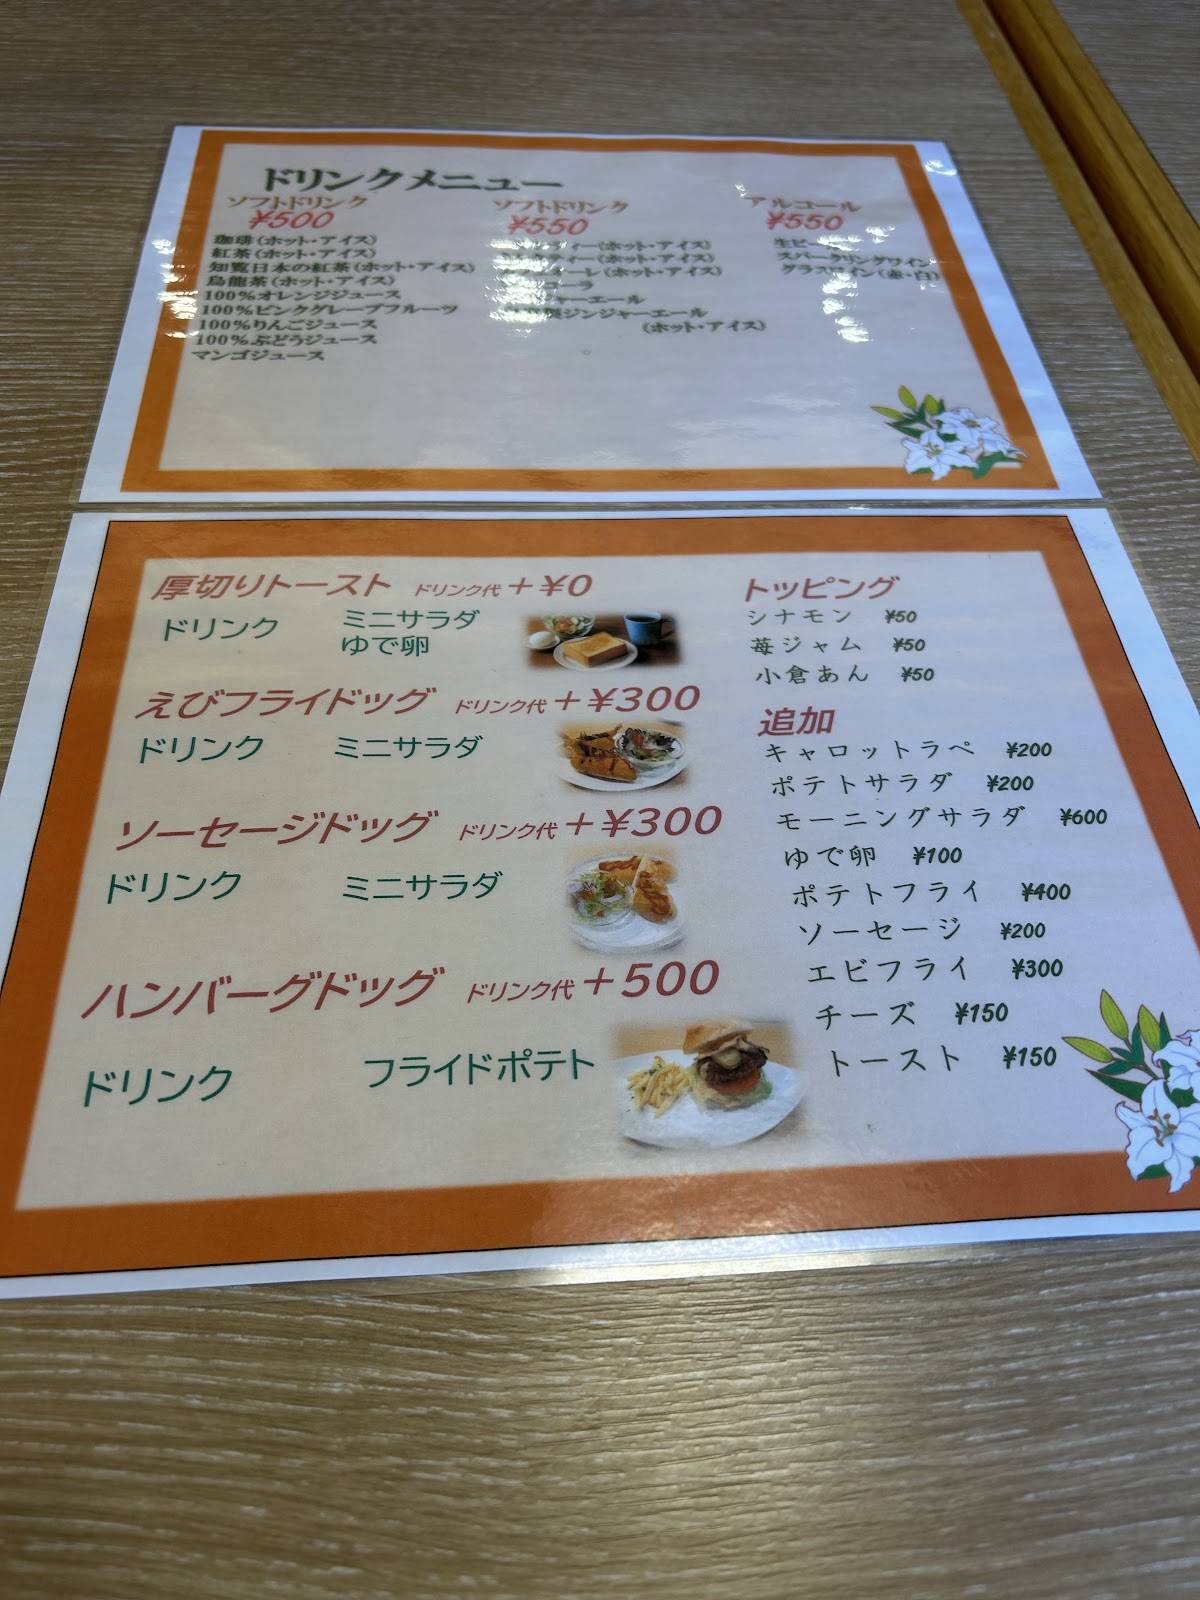 ドリンクメニュー
ソフトドリンク
¥500
珈琲(ホット・アイス)
紅茶(ホット・アイス)
知覧日本の紅茶(ホット・アイス)
烏龍茶(ホット・アイス)
100%オレンジジュース
100%ピンクグレープフルーツ
100%りんごジュース
100%ぶどうジュース
マンゴジュース
ソフトドリンク
¥550
ティー(ホット・アイス)
ティー(ホット・アイス)
オーレ(ホット・アイス)
コーラ
ジャーエール
ジンジャーエール
(ホット・アイス)
アルコール
¥550
生ビール
スパークリングワイン
グラスワイン(赤・白)
厚切りトースト ドリンク代+¥0
ドリンク ミニサラダ
ゆで卵
えびフライドッグ ドリンク代+¥300
ドリンク ミニサラダ
ソーセージドッグ ドリンク代+¥300
ドリンク ミニサラダ
ハンバーグドッグ ドリンク代+500
ドリンク フライドポテト
トッピング
シナモン ¥50
苺ジャム ¥50
小倉あん ¥50
追加
キャロットラペ ¥200
ポテトサラダ ¥200
モーニングサラダ ¥600
ゆで卵 ¥100
ポテトフライ ¥400
ソーセージ ¥200
エビフライ ¥300
チーズ ¥150
トースト ¥150